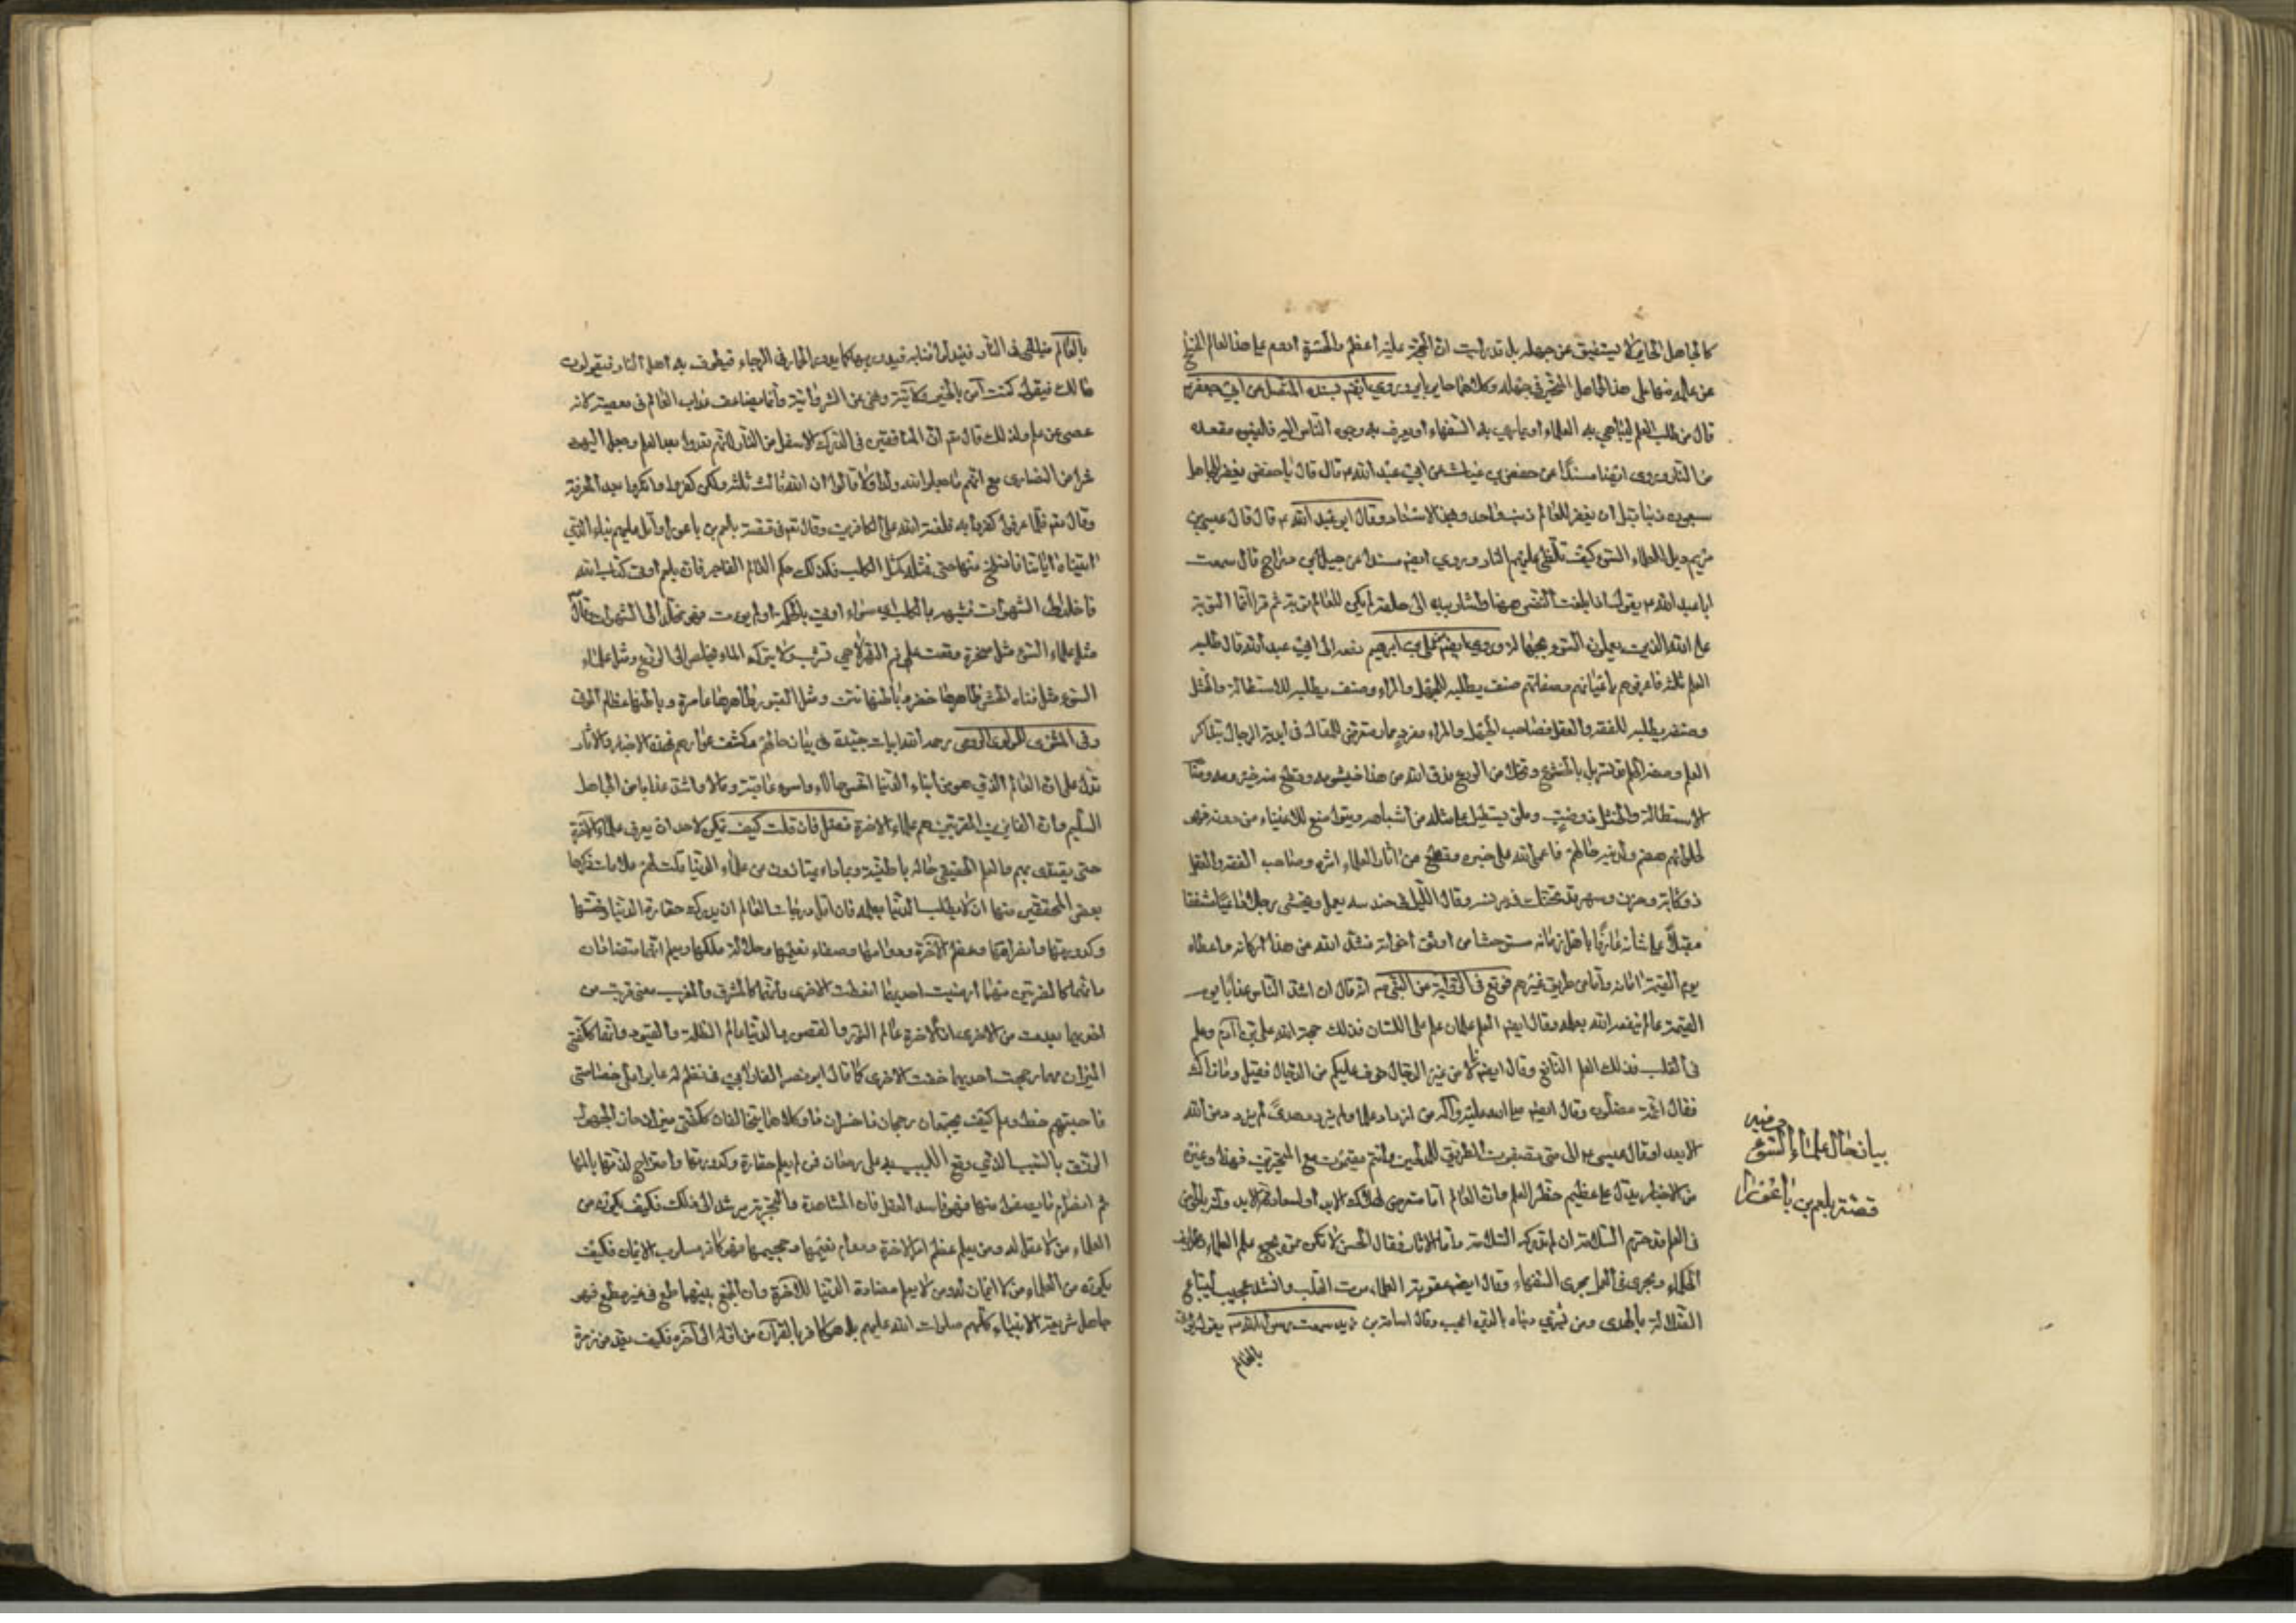 كالجاهل الحاير الذى لا يستفيق عن جهله بل قد رأيت ان الحجة عليه اعظم والحسرة ادوم على هذا العالم المنسلخ
عن علمه منها على هذا الجاهل المتحير فى جهله وكلاهما حاير باير وروى ايضا بسنده المتصل عن ابى جعفر
قال من طلب العلم ليباهى به العلماء او يمارى به السفهاء او يصرف به وجوه الناس اليه فليتبوء مقعده
من النار وروى ايضا مسندا عن حفص بن غياث عن ابى عبد الله ع قال قال يا حفص يغفر للجاهل
سبعون ذنبا قبل ان يغفر للعالم ذنب واحد وبهذا الاسناد وقال ابو عبد الله ع قال قال عيسى بن
مريم ويل للعلماء السوء كيف تلظى عليهم النار وروى ايضا مسندا عن جميل بن دراج قال سمعت
ابا عبد الله ع يقول اذا بلغت النفس ههنا واشار بيده الى حلقه لم يكن للعالم توبة ثم قرا انما التوبة
على الله للذين يعملون السوء بجهالة وروى ايضا على بن ابراهيم رفعه الى ابى عبد الله قال طلبة
العلم ثلثة فاعرفهم باعيانهم وصفاتهم صنف يطلبه للجهل والمراء وصنف يطلبه للاستطالة والختل
وصنف يطلبه للفقه والعقل فصاحب الجهل والمراء موذ ممار متعرض للمقال فى اندية الرجال بتذاكر
العلم وصفة الحلم قد تسربل بالخشوع وتخلى من الورع فدق الله من هذا خيشومه وقطع منه حيزومه وصاحب
الاستطالة والختل ذو خب وملق يستطيل على مثله من اشباهه ويتواضع للاغنياء من دونه فهو
لحلوائهم هضم ولدينه حاطم فاعمى الله على هذا خبره وقطع من اثار العلماء اثره وصاحب الفقه والعقل
ذو كآبة وحزن وسهر قد تحنك فى برنسه وقام الليل فى حندسه يعمل ويخشى وجلا داعيا مشفقا
مقبلا على شانه عارفا باهل زمانه مستوحشا من اوثق اخوانه فشد الله من هذا اركانه واعطاه
يوم القيمة امانه واما من طريق غيرهم فوقع فى النقل عن النبى ص انه قال ان اشد الناس عذابا يوم
القيمة عالم لم ينفعه الله بعلمه وقال ايضا العلم علمان علم على اللسان فذلك حجة الله على بنى آدم وعلم
فى القلب فذلك العلم النافع وقال ايضا لانا من غير الدجال اخوف عليكم من الدجال فقيل وما ذاك
فقال ائمة مضلون وقال ايضا صلى الله عليه وآله من ازداد علما ولم يزدد هدى لم يزدد من الله
الا بعدا وقال عيسى ع الى متى تصفون الطريق للمدلجين وانتم مقيمون مع المتحيرين فهذا وغيره
من الاخبار يدل على عظيم خطر العلم وان العالم اما متعرض لهلاك الابد او لسعادة الابد وانه بالخوض
فى العلم قد حرم السلامة ان لم يدرك السلامة واما الاثار فقال الحسن لا تكن ممن يجمع علم العلماء وطرايف
الحكماء ويجرى فى العمل مجرى السفهاء وقال ايضا عقوبة العلماء موت القلب وانشد عجبت لمبتاع
الضلالة بالهدى ومن يشترى دنياه بالدين اعجب وقال اسامة بن زيد سمعت رسول الله ص يقول يؤتى
بالعالم
حرفيه
بيان حال علماء السوء
قصة بلعم بن باعورا
بالعالم فيلقى فى النار فتندلق اقتابه فيدور بها كما يدور الحمار فى الرحاء فيطوف به اهل النار فيقولون
مالك فيقول كنت آمر بالخير ولا آتيه وانهى عن الشر وآتيه وانما يضاعف عذاب العالم فى معصيته لانه
عصى عن علم ولذلك قال تع ان المنافقين فى الدرك الاسفل من النار لانهم جحدوا بعد العلم وجعل اليهود
شرا من النصارى مع انهم ما جعلوا لله ولدا ولا قالوا ان الله ثالث ثلثة ولكن كفروا وانكروا بعد المعرفة
وقال تع فلما جاءهم ما عرفوا كفروا به فلعنة الله على الكافرين وقال تع فى قصة بلعم بن باعورا واتل عليهم نباء الذى
آتيناه آياتنا فانسلخ منها حتى فمثله كمثل الكلب فكذلك حكم العالم الفاجر فان بلعم اوتى كتاب الله
فاخلد الى الشهوات فشبه بالكلب اى سواء اوتى بالحكمة او لم يؤت فهو يخلد الى الشهوات وقال
مثل علماء السوء مثل صخرة وقعت على فم النهر لا هى تشرب ولا تترك الماء يخلص الى الزرع ومثل علماء
السوء مثل قناة الحش ظاهرها حضر وباطنها نتن ومثل القبور ظاهرها عامرة وباطنها عظام الموتى
وفى المثنوى للمولوى الرومى رحمه الله ابيات جيدة فى بيان حالهم وكشف عوارهم فهذه الاخبار والاثار
تدل على ان العالم الذى هو من ابناء الدنيا اخس حالا واسوء عاقبة ومآلا واشد عذابا من الجاهل
السليم وان الفايزين المقربين هم علماء الاخرة فصل فان قلت كيف يمكن لاحد ان يعرف علماء الاخرة
حتى يقتدى بهم والعلم الحقيقى حالة باطنية وبماذا يمتازون من علماء الدنيا قلت لهم علامات ذكرها
بعض المحققين منها ان لا يطلب الدنيا بعلمه فان اقل درجات العالم ان يدرك حقارة الدنيا وخستها
وكدورتها وانصرامها وعظم الآخرة ودوامها وصفاء نعيمها وجلالة ملكها ويعلم انهما متضادتان
وانهما كالضرتين مهما ارضيت احديهما اسخطت الاخرى وانهما كالمشرق والمغرب متى قربت من
احديهما بعدت من الاخرى لان الاخرة عالم النور والقصور والدنيا عالم الظلمة والقيود وانهما ككفتى
الميزان مهما رجحت احديهما خفت الاخرى كما قال ابو نصر الفارابى فى نظم له
بالشيب الذى وقع
ثم انصرام ما يصفو منها فهو فاسد العقل فان المشاهدة والتجربة يرشد الى ذلك فكيف يكون من
العلماء من لا عقل له ومن لا يعلم عظم امر الاخرة ودوام نعيمها وجحيمها فهو كافر مسلوب الايمان فكيف
يكون من العلماء من لا ايمان له ومن لا يعلم مضادة الدنيا للاخرة وان الجمع بينهما طمع فى غير مطمع فهو
جاهل بشريعة الانبياء كلهم صلوات الله عليهم بل هو كافر بالقرآن من اوله الى آخره فكيف يعد من زمرة